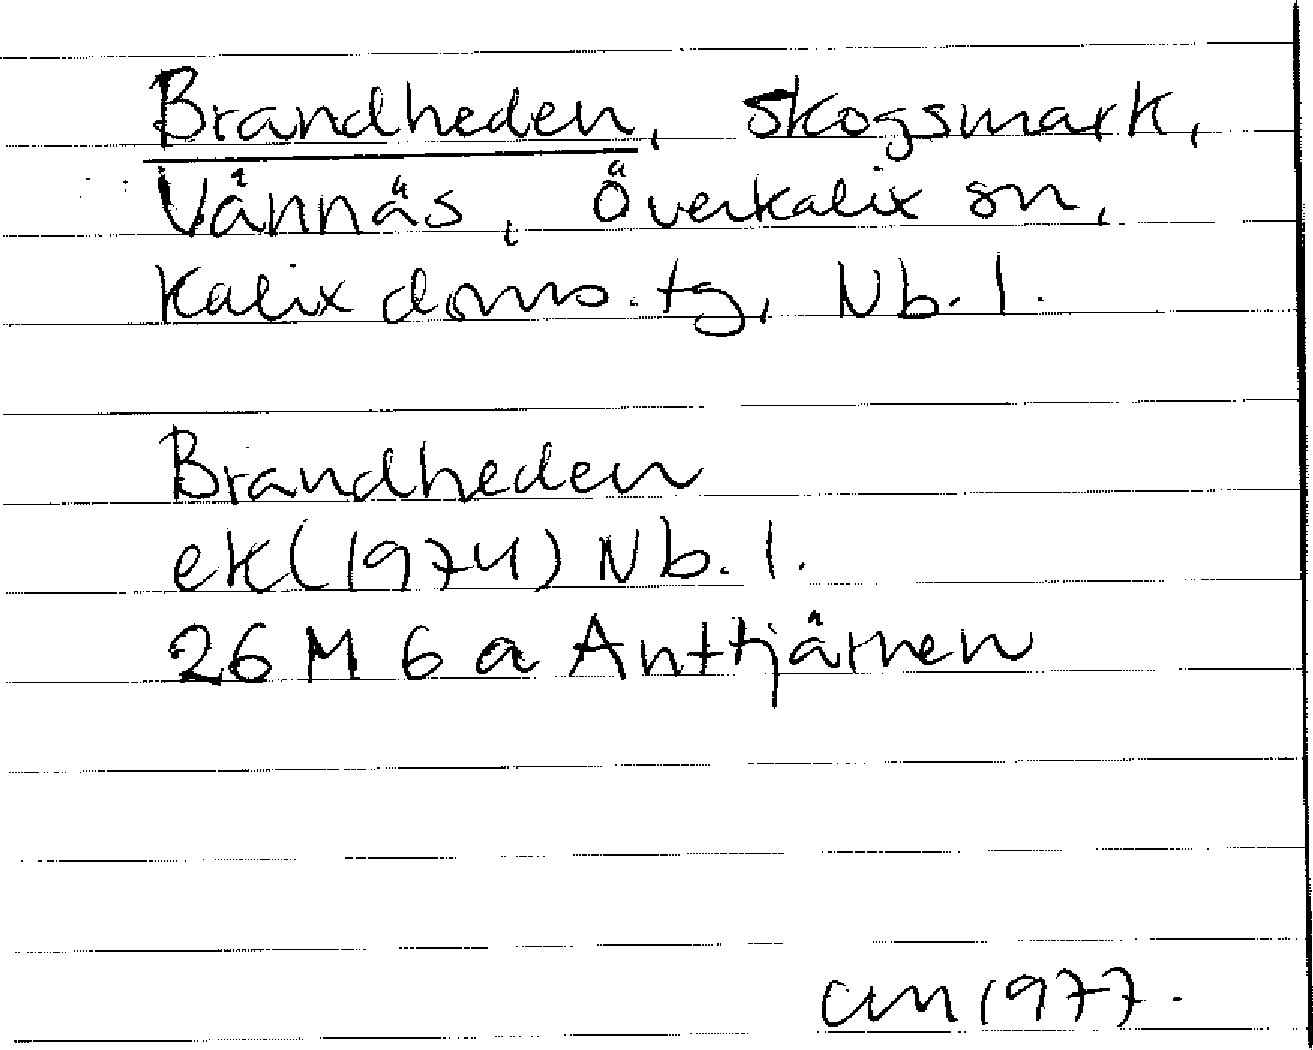 Brandheden, skogsmark,
Vännäs, Överkalix sn,
Kalix doms. tg, Nb. l.
Brandheden
ek(1974) Nb. l.
26 M 6 a Anttjärnen
cm 1977.